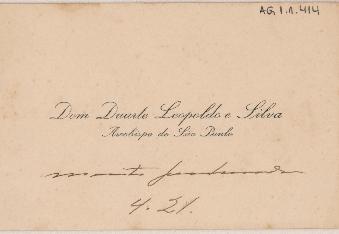 AG.1.1.414
Dom Duarte Leopoldo e Silva
Arcebispo de São Paulo
muito penhorado
4.21.